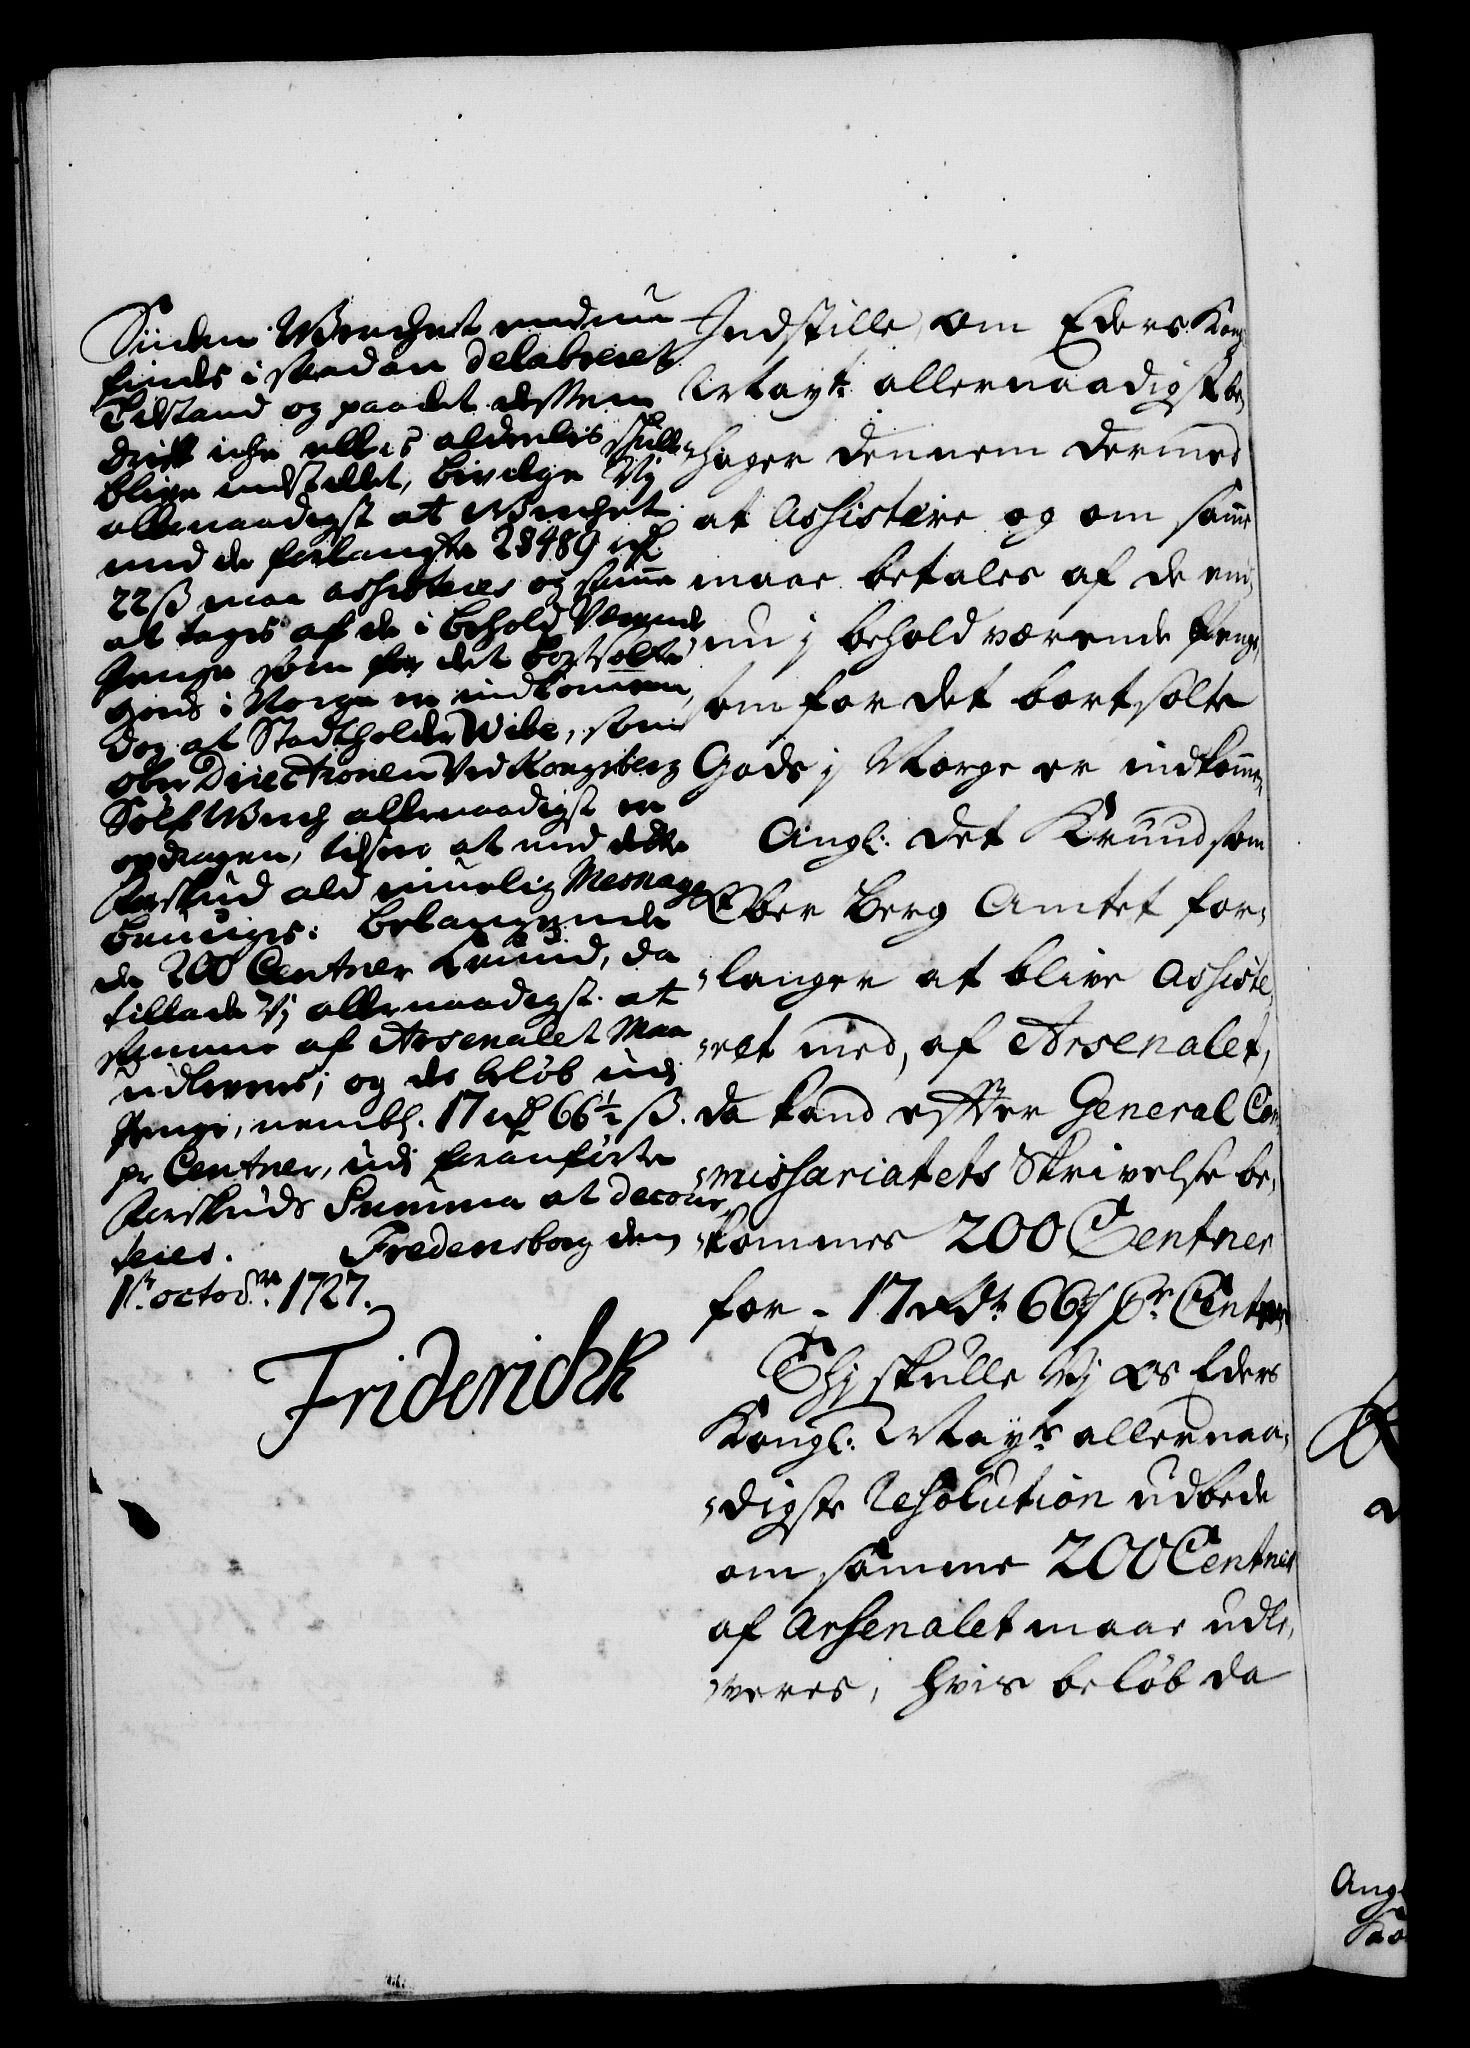 Siiden Werchet endnu
findes i saadan delabreret
Tilstand og paadet dessen
drift iche ellers aldeelis skulle
blive indstillet, bevilge Vj
allernaadigst at Werchet
med de forlangte 28489 rd
22 ß maa assisteres og samme
at tages af de i behold værende
Penge som for det bortsolte
Gods i Norge er indkommen,
dog at Stadtholder Wibe, som
ober Directionen ved Kongsberg
Sølf Werch allernaadigst er
opdragen, tilseer at med dette
forskud ald muelig Mesnage
bruuges: belangende
de 200 Centner Kruud, da
tillade Vj allernaadigst at
samme af Arsenalet maa
udleveres, og des beløb udi
Penge, nembl. 17 rd 66½ ß.
pr Centner, udi foranførte
forskuds Summa at decour
teres. Fredensborg den
1st. octobr. 1727.
Friderichh
Indstille, om Eders Kong
Mayt. allernaadigst be-
hager dennem dermed
at Assistere og om samme
maae betales af de end-
nu j behold værende Penge,
som for det bortsolte
Gods j Norge er indkommen,
Angl: det Kruud som
Ober Berg Amtet for-
langer at blive Assiste-
ret med, af Arsenalet,
da kand efter General Com
missariatets Skrivelse be-
kommes 200 Centner
for - 17 Rdr 66 ß pr Centner,
Thj skulle Vj os Eders
Kongl: Mayts allernaa-
digste Resolution udbede
om samme 200 Centner
af Arsenalet maae udle-
veres, hvis beløb da
Ang